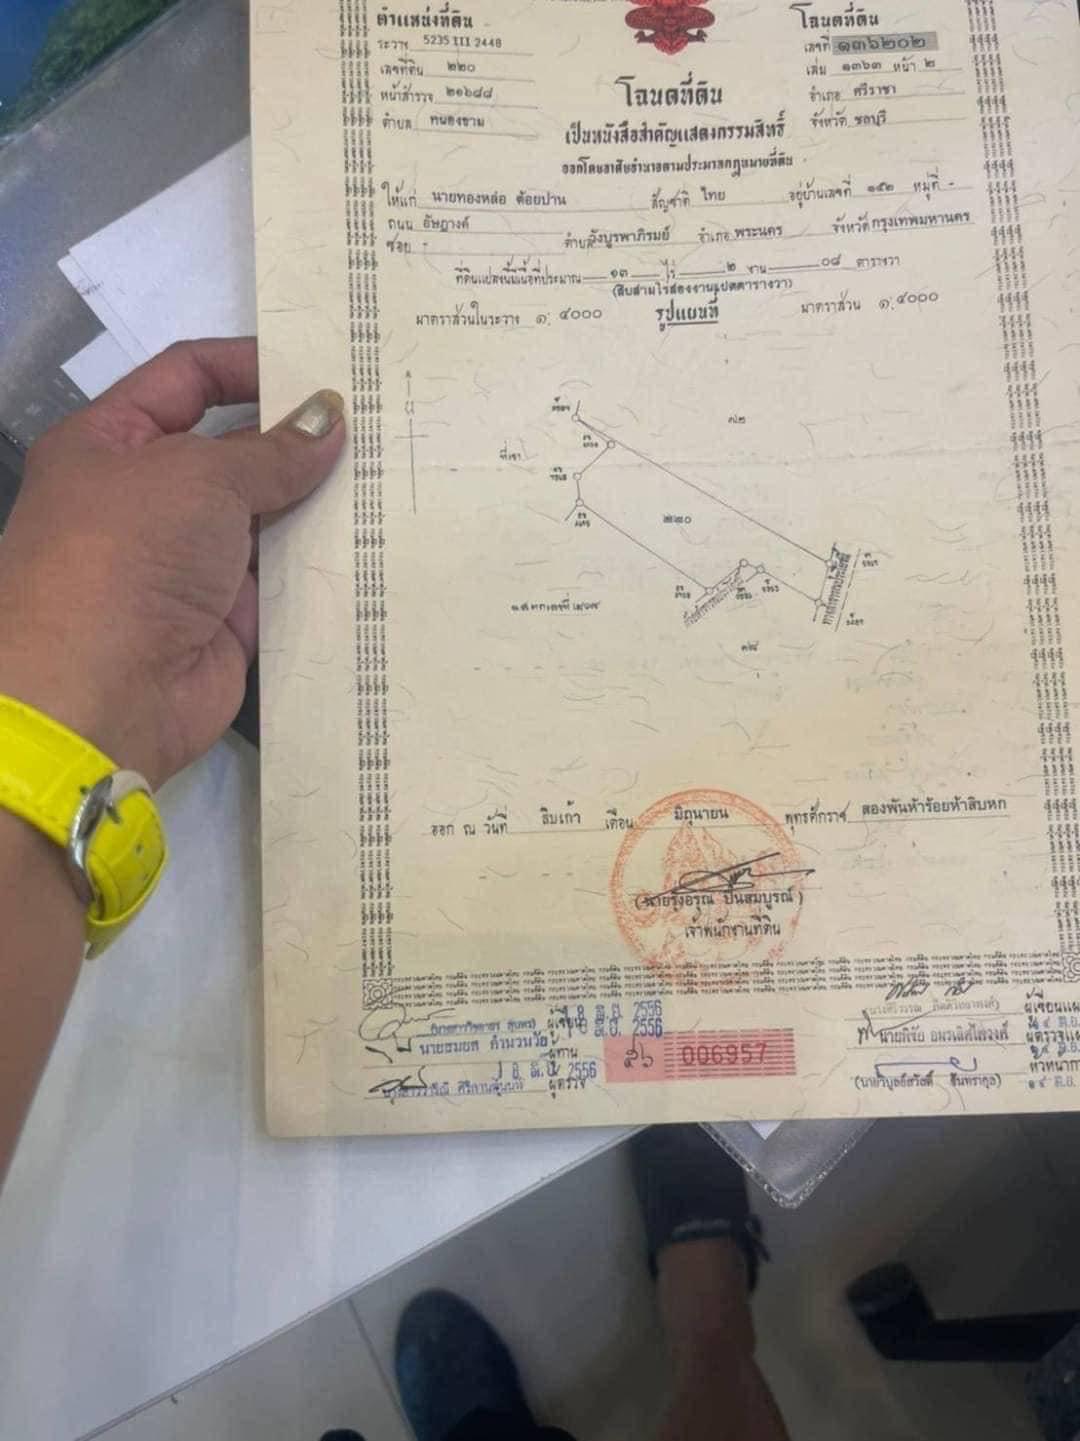 ตำแหน่งที่ดิน
ระวาง 5235 III 2448
เลขที่ดิน ๒๒๐
หน้าสำรวจ ๒๑๖๘๘
ตำบล หนองขาม
โฉนดที่ดิน
เลขที่ ๑๓๖๒๐๒
เล่ม ๑๓๖๓ หน้า ๒
อำเภอ ศรีราชา
จังหวัด ชลบุรี
โฉนดที่ดิน
เป็นหนังสือสำคัญแสดงกรรมสิทธิ์
ออกโดยอาศัยอำนาจตามประมวลกฎหมายที่ดิน
ให้แก่ นายทองหล่อ ต้อยปาน สัญชาติ ไทย อยู่บ้านเลขที่ ๑๕๒ หมู่ที่ -
ถนน อัษฎางค์
ซอย - ตำบล วังบูรพาภิรมย์ อำเภอ พระนคร จังหวัด กรุงเทพมหานคร
ที่ดินแปลงนี้มีเนื้อที่ประมาณ ๑๓ ไร่ ๒ งาน ๐๘ ตารางวา
(สิบสามไร่สองงานแปดตารางวา)
มาตราส่วนในระวาง ๑: ๔๐๐๐ รูปแผนที่ มาตราส่วน ๑: ๔๐๐๐
น
๗๒
ที่เขา
๒๒๐
ทางสาธารณประโยชน์
ทางสาธารณประโยชน์
๓๘
ออก ณ วันที่ สิบเก้า เดือน มิถุนายน พุทธศักราช สองพันห้าร้อยห้าสิบหก
(นายรุ่งอรุณ ปิ่นสมบูรณ์)
เจ้าพนักงานที่ดิน
ผู้เขียน 18 มิ.ย. 2556
นายธนยศ คำนวนวัย ผู้ทาน
18 มิ.ย. 2556
ผู้ตรวจ
006957
ผู้เขียนแผ
นายพิชัย อมรเลิศไสวงค์ ผู้ตรวจแผ
หัวหน้ากา
(นายวิบูลย์สวัสดิ์ จันทรากุล)